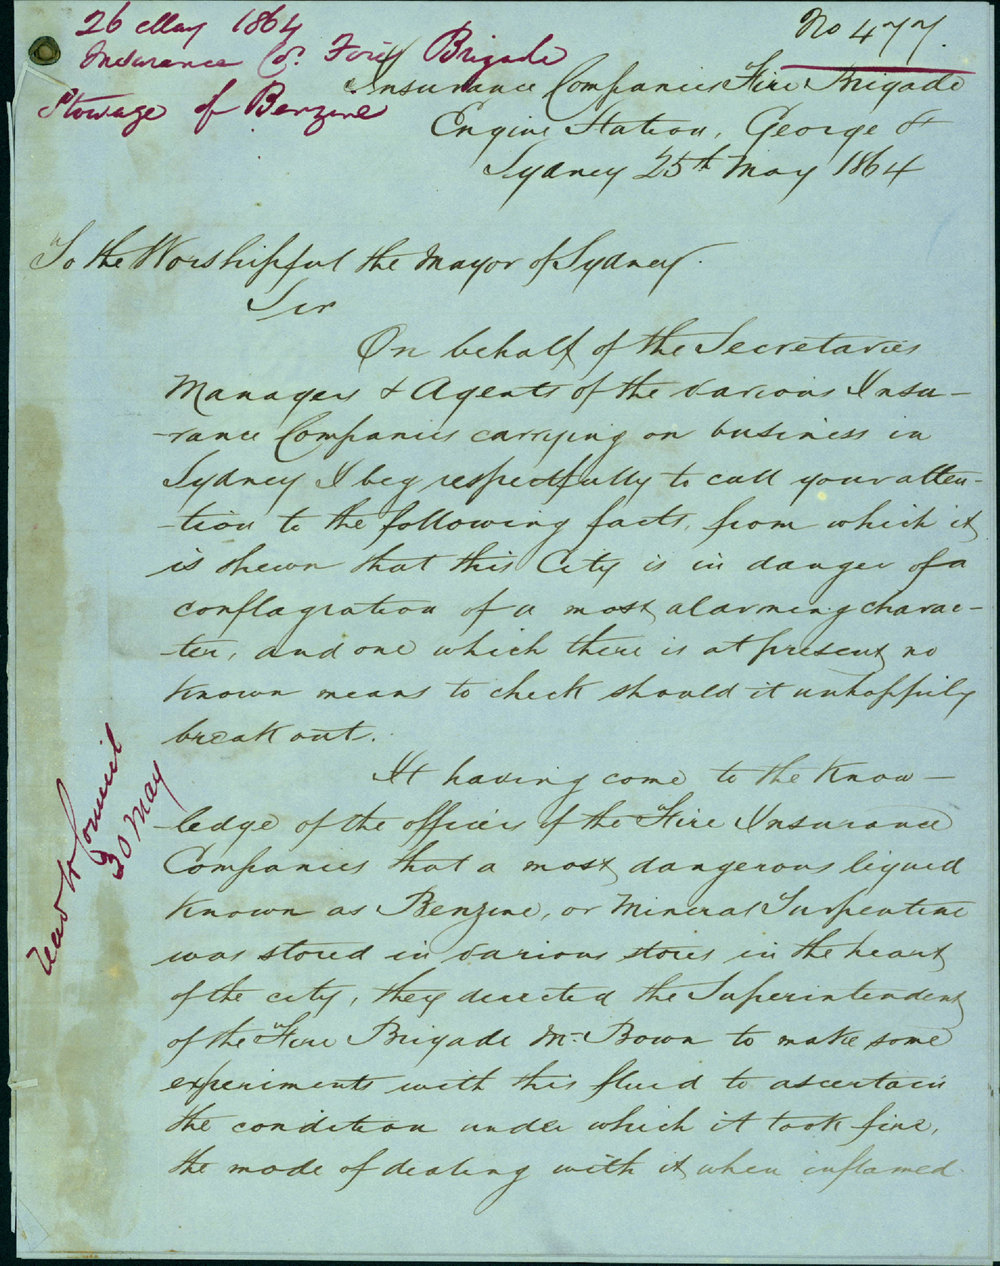 26 May 1864
Insurance Co. Fire Brigade
Stowage of Benzine
No 477.
Insurance Companies Fire Brigade
Engine Station, George St
Sydney 25th May 1864
To the Worshipful the Mayor of Sydney.
Sir
On behalf of the Secretaries
Managers & Agents of the various Insu-
-rance Companies carrying on business in
Sydney I beg respectfully to call your atten-
-tion to the following facts, from which it
is shewn that this City is in danger of a
conflagration of a most alarming charac-
-ter, and one which there is at present no
known means to check should it unhappily
break out.
It having come to the know-
-ledge of the officers of the Fire Insurance
Companies that a most dangerous liquid
known as Benzine, or Mineral Turpentine
was stored in various stores in the heart
of the city, they directed the Superintendent
of the Fire Brigade Mr. Bown to make some
experiments with this fluid to ascertain
the condition under which it took fire,
the mode of dealing with it when inflamed
Read to Council
30 May